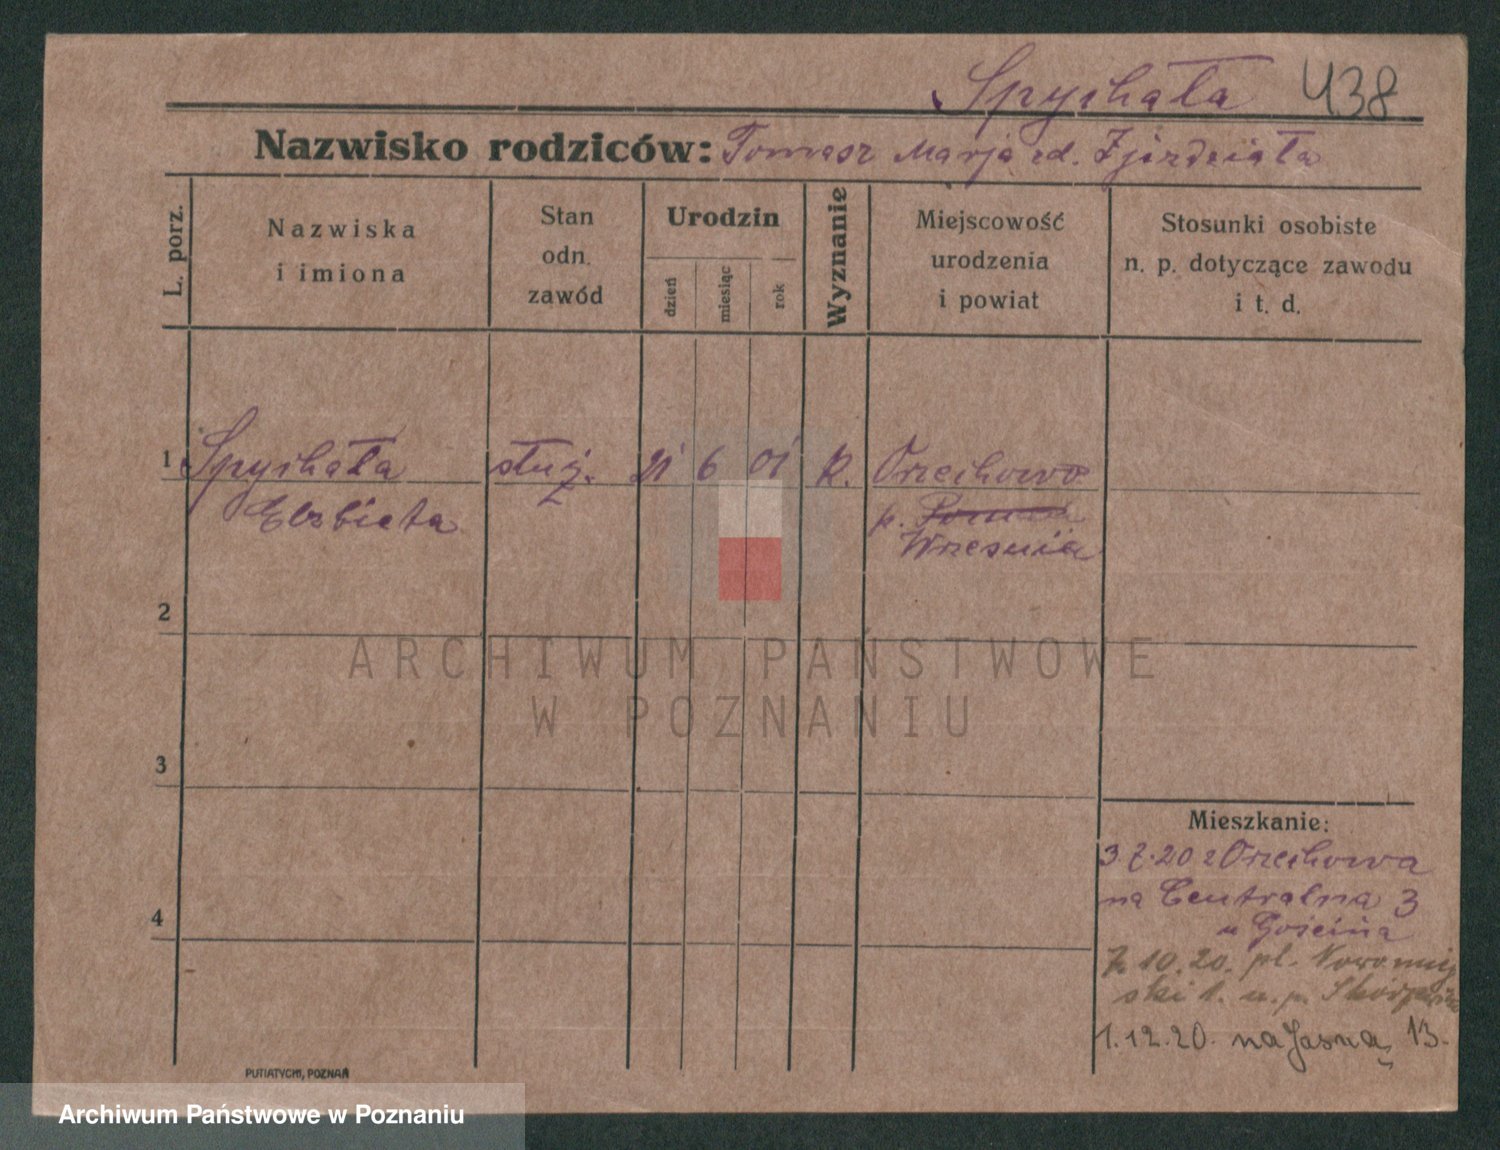 Spychała 438
Nazwisko rodziców: Tomasz Marja zd.
L. porz.
Nazwiska
i imiona
Stan
odn.
zawód
Urodzin
dzień
miesiąc
rok
Wyznanie
Miejscowość
urodzenia
i powiat
Stosunki osobiste
n. p. dotyczące zawodu
i t. d.
1 Spychała służ. 21 6 01 R. Orzechowo
Elzbieta p.
Wrzesnia
2
ARCHIWUM PAŃSTWOWE
W POZNANIU
3
Mieszkanie:
3.7.20 z Orzechowa
na Centralna 3
u Gościna
4
7.10.20. pl. Nowomiej
ski 1. u. p.
1.12.20. na Jasną 13.
PUTIATYCKI, POZNAŃ
Archiwum Państwowe w Poznaniu